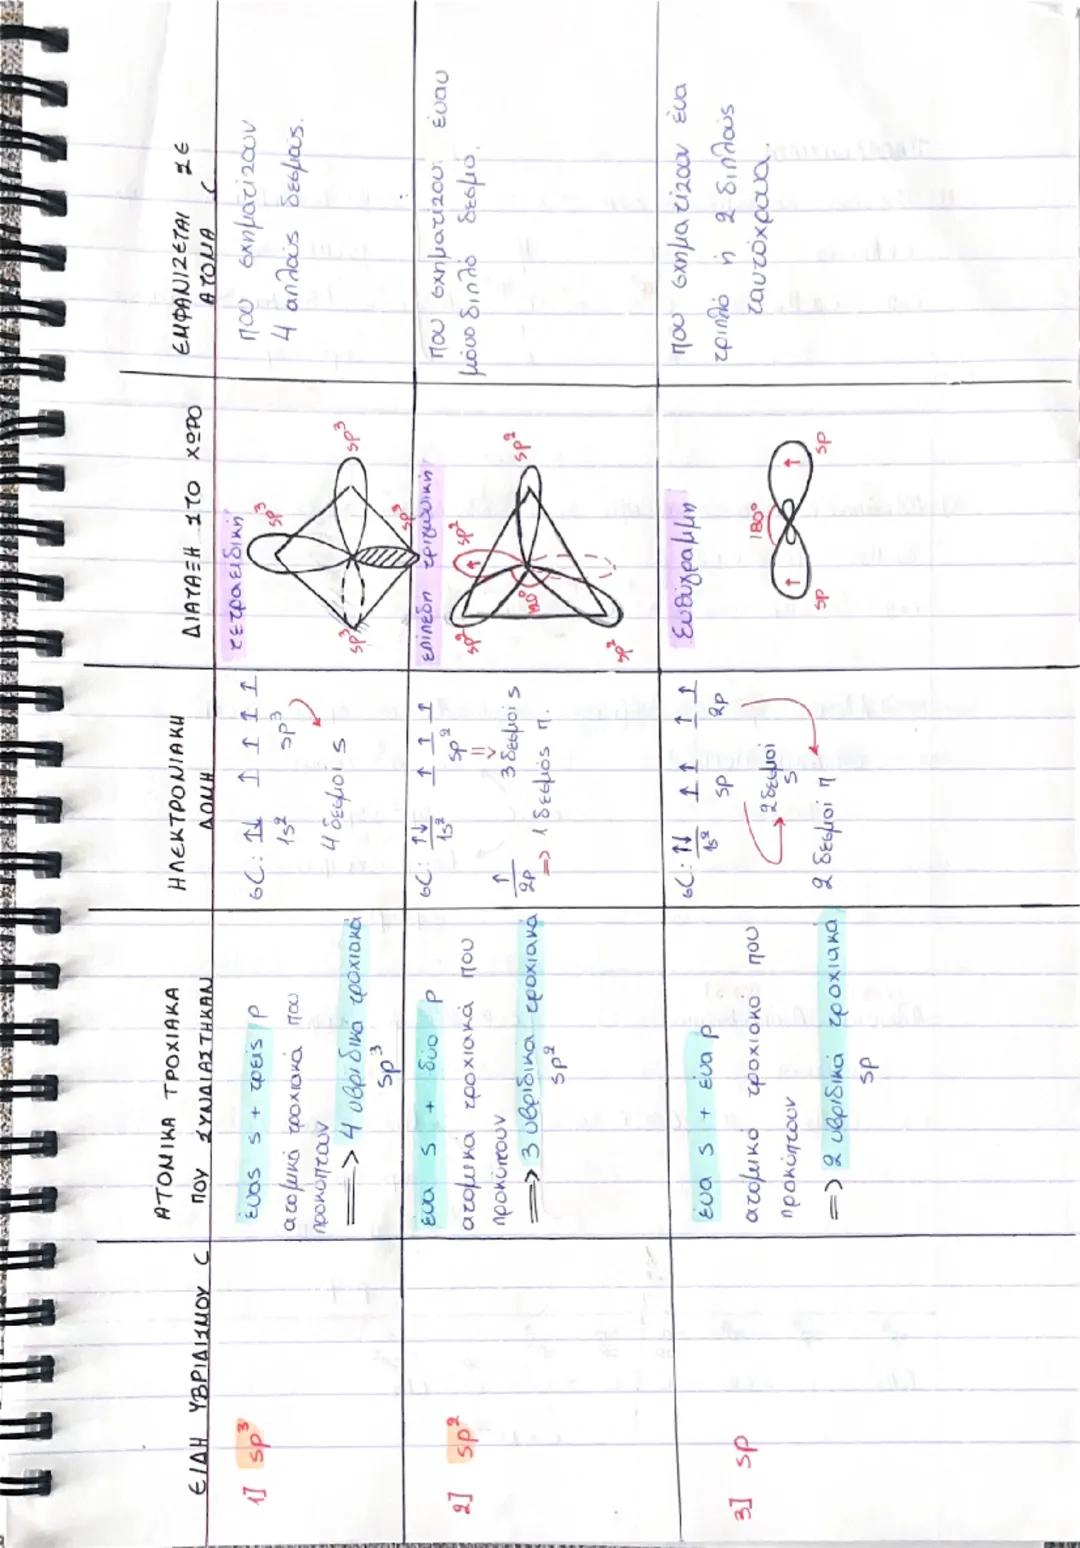 ΕΙΔΗ ΥΒΡΙΔΙΣΜΟΥ C
ΑΤΟΜΙΚΑ ΤΡΟΧΙΑΚΑ
ΠΟΥ ΣΥΝΔΙΑΣΤΗΚΑΝ
ΗΛΕΚΤΡΟΝΙΑΚΗ
ΔΟΜΗ
ΔΙΑΤΑΞΗ ΣΤΟ ΧΩΡΟ
ΕΜΦΑΝΙΖΕΤΑΙ ΣΕ
ΑΤΟΜΑ C
1] sp³
ένας s + τρεις p
ατομικά τροχιακά που
προκύπτουν
⟹ 4 υβριδικά τροχιακά
sp³
6C: ↑↓ ↑ ↑ ↑ ↑
1s² sp³
4 δεσμοί s
τετραεδική
sp³
sp³
sp³
sp³
που σχηματίζουν
4 απλούς δεσμούς.
2] sp²
ένα s + δύο p
ατομικά τροχιακά που
προκύπτουν
⟹ 3 υβριδικά τροχιακά
sp²
6C: ↑↓ ↑ ↑ ↑
1s² sp²
⇓
↑ 3 δεσμοί s
2p ⇒ 1 δεσμός π.
επίπεδη τριγωνική
sp²
sp²
sp²
sp²
που σχηματίζουν έναν
μόνο διπλό δεσμό.
3] sp
ένα s + ένα p
ατομικό τροχιακό που
προκύπτουν
⇒ 2 υβριδικά τροχιακά
sp
6C: ↑↓ ↑ ↑ ↑ ↑
1s² sp 2p
→ 2 δεσμοί
s
2 δεσμοί π
Ευθύγραμμη
180°
↑ ↑
sp sp
που σχηματίζουν ένα
τριπλό η 2 διπλούς
ταυτόχρονα